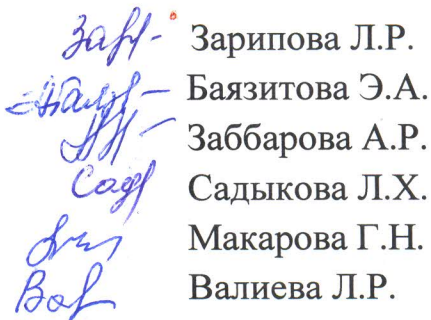 Зарипова Л.Р.
Баязитова Э.А.
Заббарова А.Р.
Садыкова Л.Х.
Макарова Г.Н.
Валиева Л.Р.